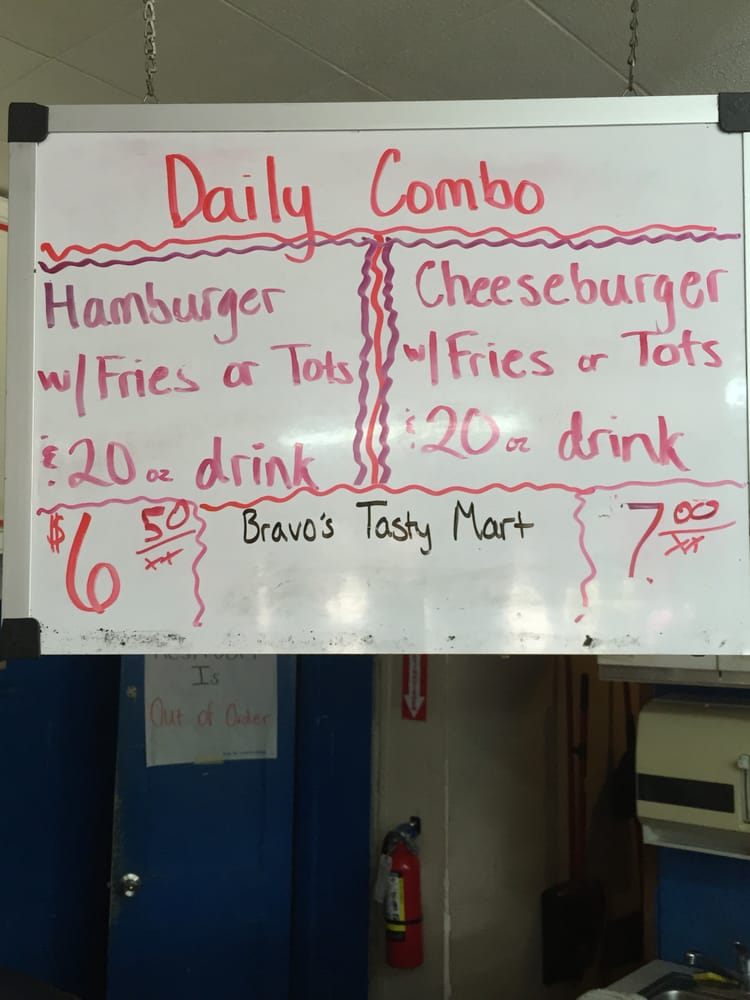 Daily Combo
Hamburger
w/Fries or Tots
& 20 oz drink
$6 50/xx
Cheeseburger
w/Fries or Tots
& 20 oz drink
7 00/xx
Bravo's Tasty Mart
Is
Out of Order